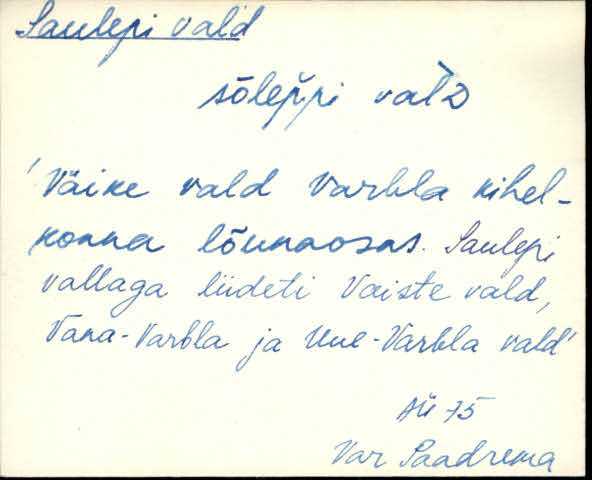 Saulepi vald
sõlep̆pi val̀D
'Väike vald Varbla kihel-
konna lõunaosas. Saulepi
vallaga liideti Vaiste vald,
Vana-Varbla ja Uue-Varbla vald'
AÜ 75
Var Paadrema